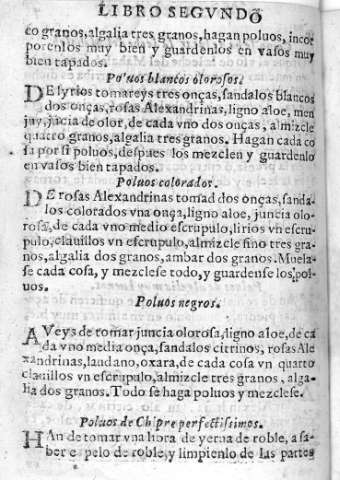 LIBRO SEGVNDO
co granos, algalia tres granos, hagan poluos, incor
porenlos muy bien y guardenlos en vasos muy
bien tapados.
Poluos blancos olorosos.
DE lyrios tomareys tres onças, sandalos blancos
dos onças, rosas Alexandrinas, ligno aloe, men
juy, juncia de olor, de cada vno dos onças, almizcle
quatro granos, algalia tres granos. Hagan cada co
sa por si poluos, despues los mezclen y guardenlo
en vasos bien tapados.
Poluos colorador.
DE rosas Alexandrinas tomad dos onças, sanda
los colorados vna onça, ligno aloe, juncia olo-
rosa, de cada vno medio escrupulo, lirios vn escru-
pulo, clauillos vn escrupulo, almizcle fino tres gra-
nos, algalia dos granos, ambar dos granos. Muela-
se cada cosa, y mezclese todo, y guardense los pol-
uos.
Poluos negros.
AVeys de tomar juncia olorosa, ligno aloe, de ca
da vno media onça, sandalos citrinos, rosas Ale
xandrinas, laudano, oxara, de cada cosa vn quarto
clauillos vn escrupulo, almizcle tres granos, alga-
lia dos granos. Todo se haga poluos y mezclese.
Poluos de Chipre perfectissimos.
HAn de tomar vna hora de yerua de roble, a sa-
ber el pelo de roble, y limpienlo de las partes